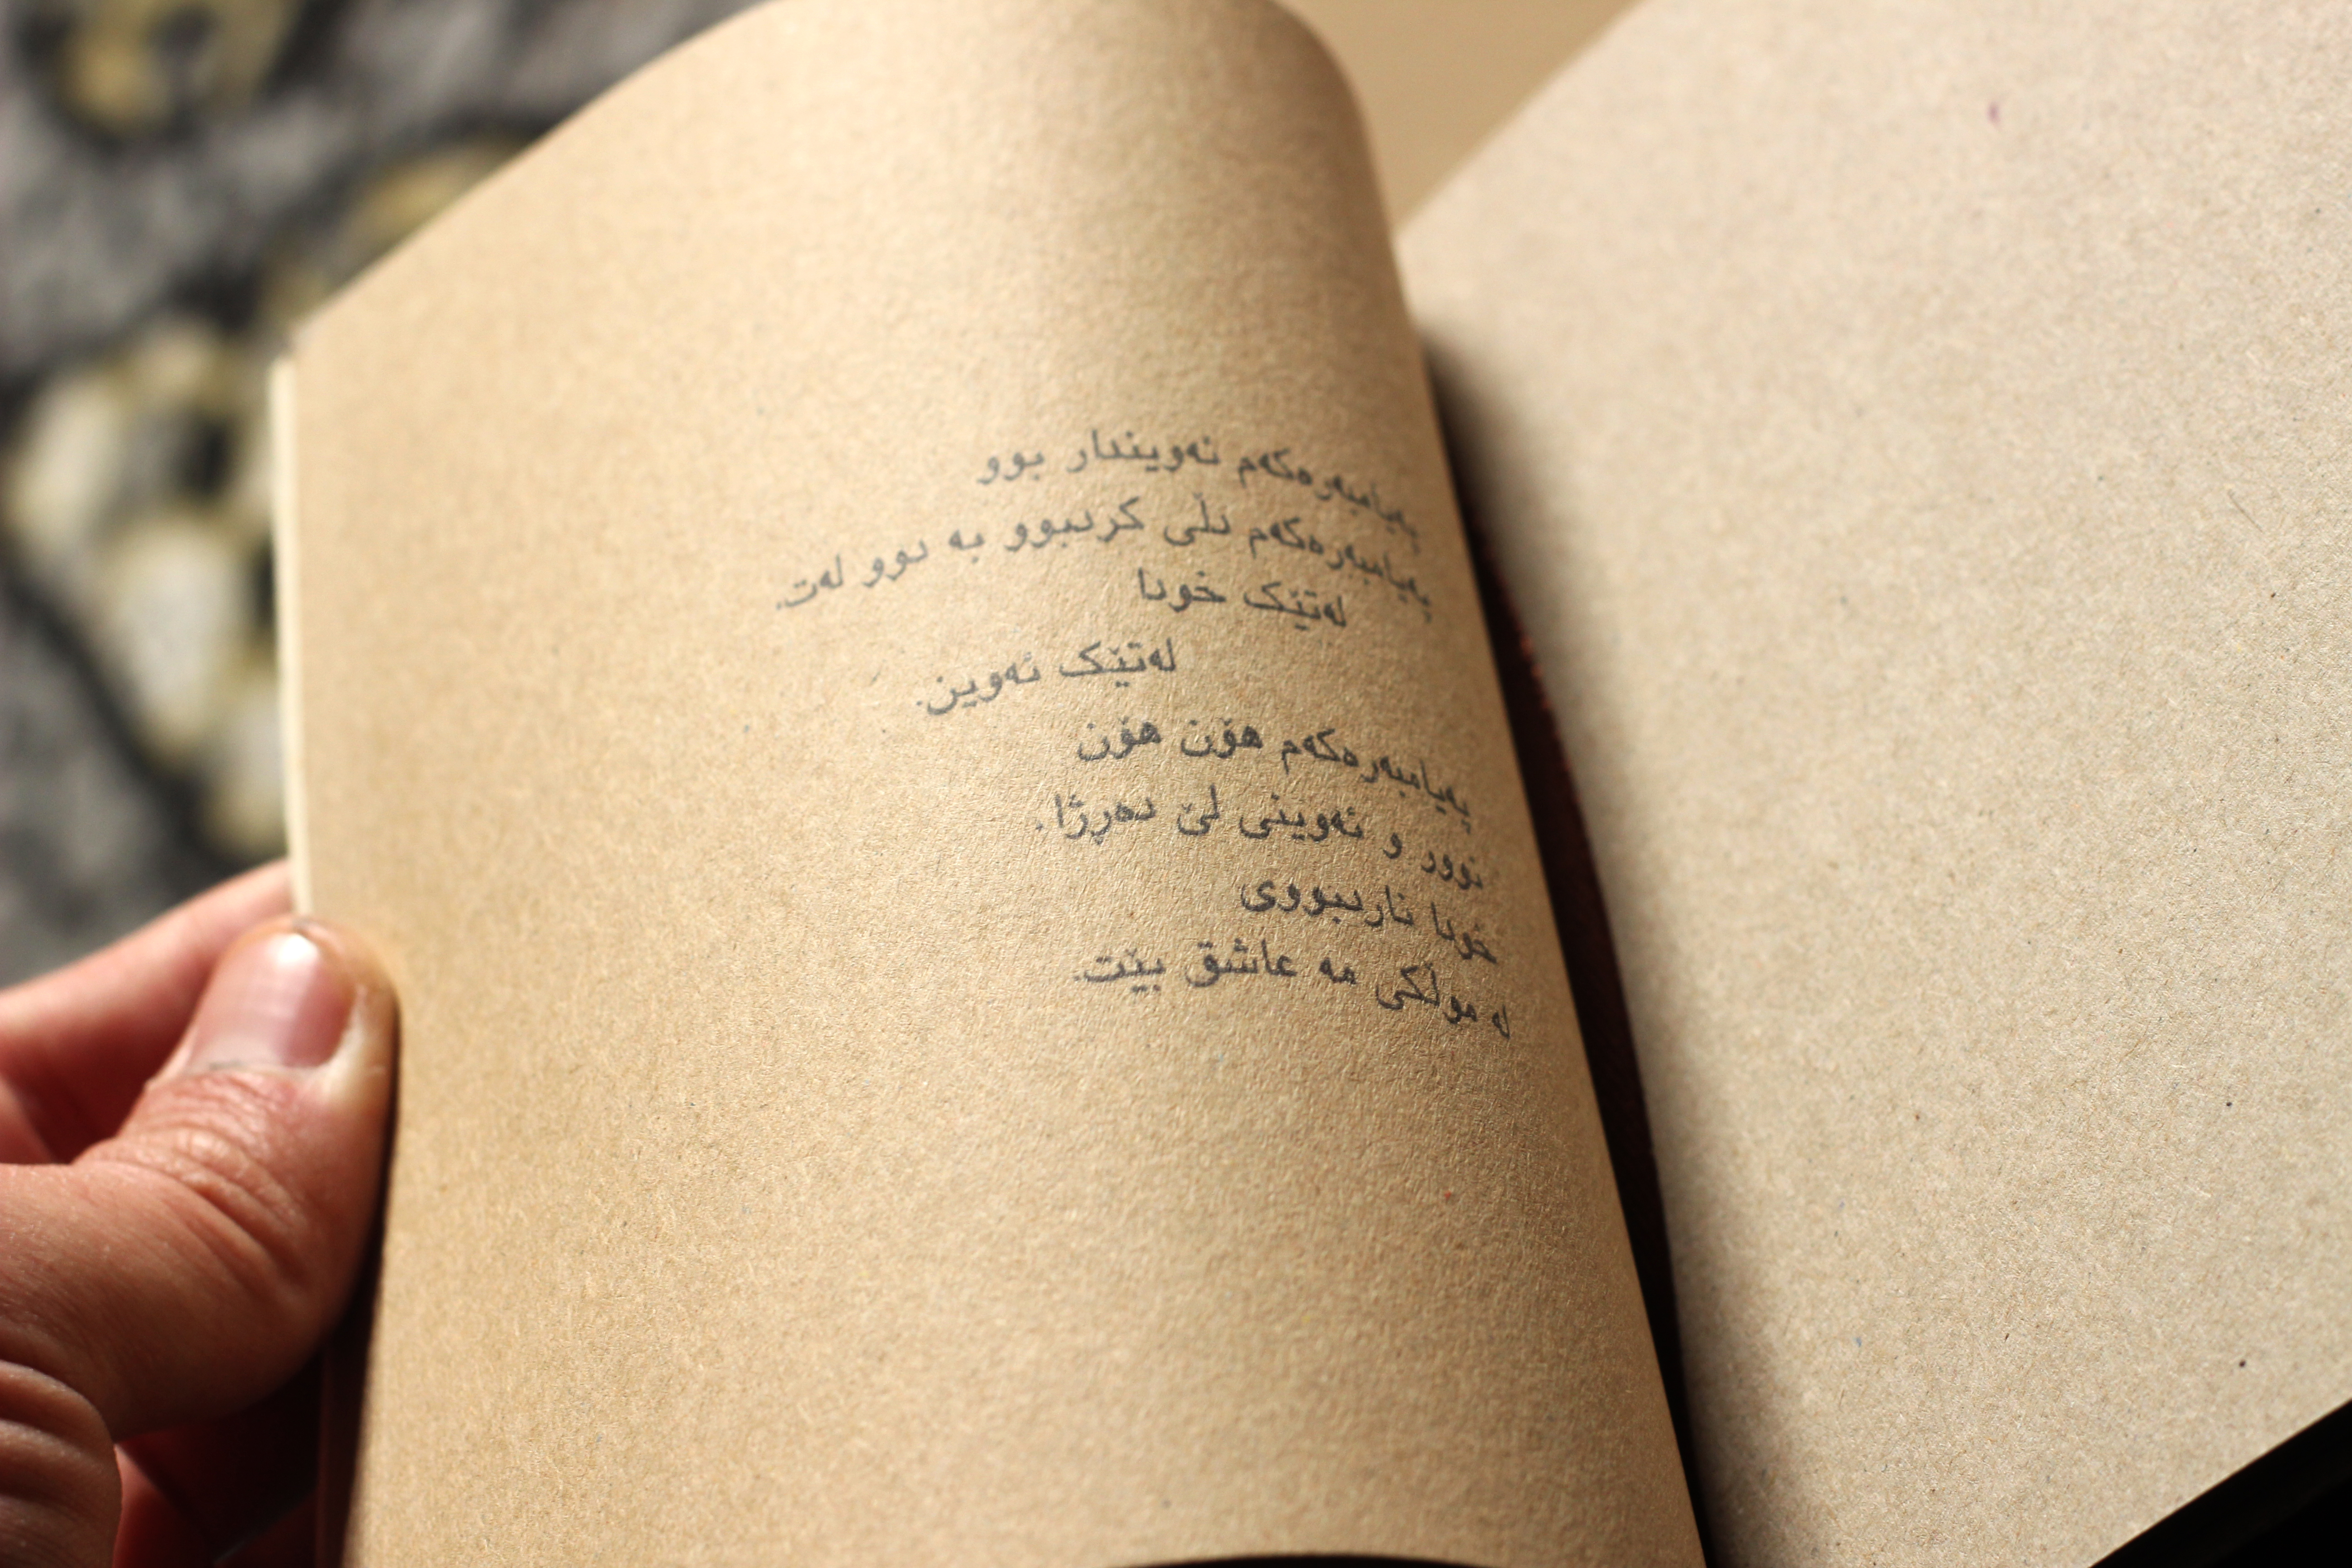 پەیامبەرەکەم ئەویندار بوو
پەیامبەرەکەم دڵی کردبوو بە دوو لەت.
لەتێک خودا
لەتێک ئەوین.
پەیامبەرەکەم هۆن هۆن
نوور و ئەوینی لێ دەڕژا.
خودا ناردبووی
لە موڵکی مە عاشق بێت.